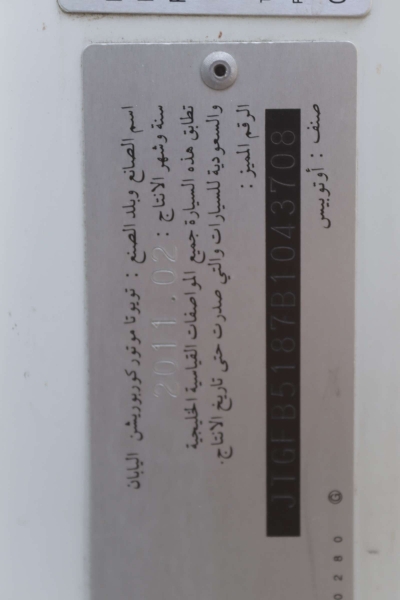 اسم الصانع وبلد الصنع : تويوتا موتور كوربوريشن اليابان
سنة وشهر الانتاج : 2011.02
تطابق هذه السيارة جميع المواصفات القياسية الخليجية
والسعودية للسيارات والتي صدرت حتى تاريخ الانتاج.
الرقم المميز :
JTGFB5187B1043708
صنف : أوتوبيس
0280 G